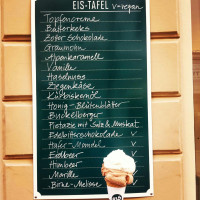 EIS-TAFEL v=vegan
Topfencreme
Butterkeks
Zotter Schokolade
Graumohn
Alpenkaramell
Vanille
Haselnuss
Ziegenkäse
Kürbiskernöl
Honig-Blütenblätter
Buckelberger
Pistazie mit Salz & Muskat
Edelbitterschokolade v
Hafer-Mandel v
Erdbeer v
Himbeer v
Marille
Birne-Melisse